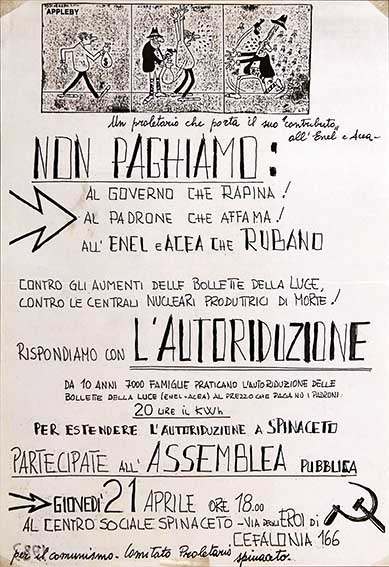 APPLEBY
Un proletario che porta il suo "contributo"
all'Enel e Acea-
NON PAGHIAMO:
AL GOVERNO CHE RAPINA!
AL PADRONE CHE AFFAMA!
ALL'ENEL e ACEA CHE RUBANO
CONTRO GLI AUMENTI DELLE BOLLETTE DELLA LUCE,
CONTRO LE CENTRALI NUCLEARI PRODUTTRICI DI MORTE!
RISPONDIAMO CON L'AUTORIDUZIONE
DA 10 ANNI 7000 FAMIGLIE PRATICANO L'AUTORIDUZIONE DELLE
BOLLETTE DELLA LUCE (ENEL-ACEA) AL PREZZO CHE PAGANO I PADRONI:
20 LIRE IL KWh
PER ESTENDERE L'AUTORIDUZIONE A SPINACETO
PARTECIPATE all'ASSEMBLEA PUBBLICA
GIOVEDI' 21 APRILE ORE 18.00
AL CENTRO SOCIALE SPINACETO - VIA degli EROI DI
CEFALONIA 166
per il comunismo - Comitato Proletario spinaceto.